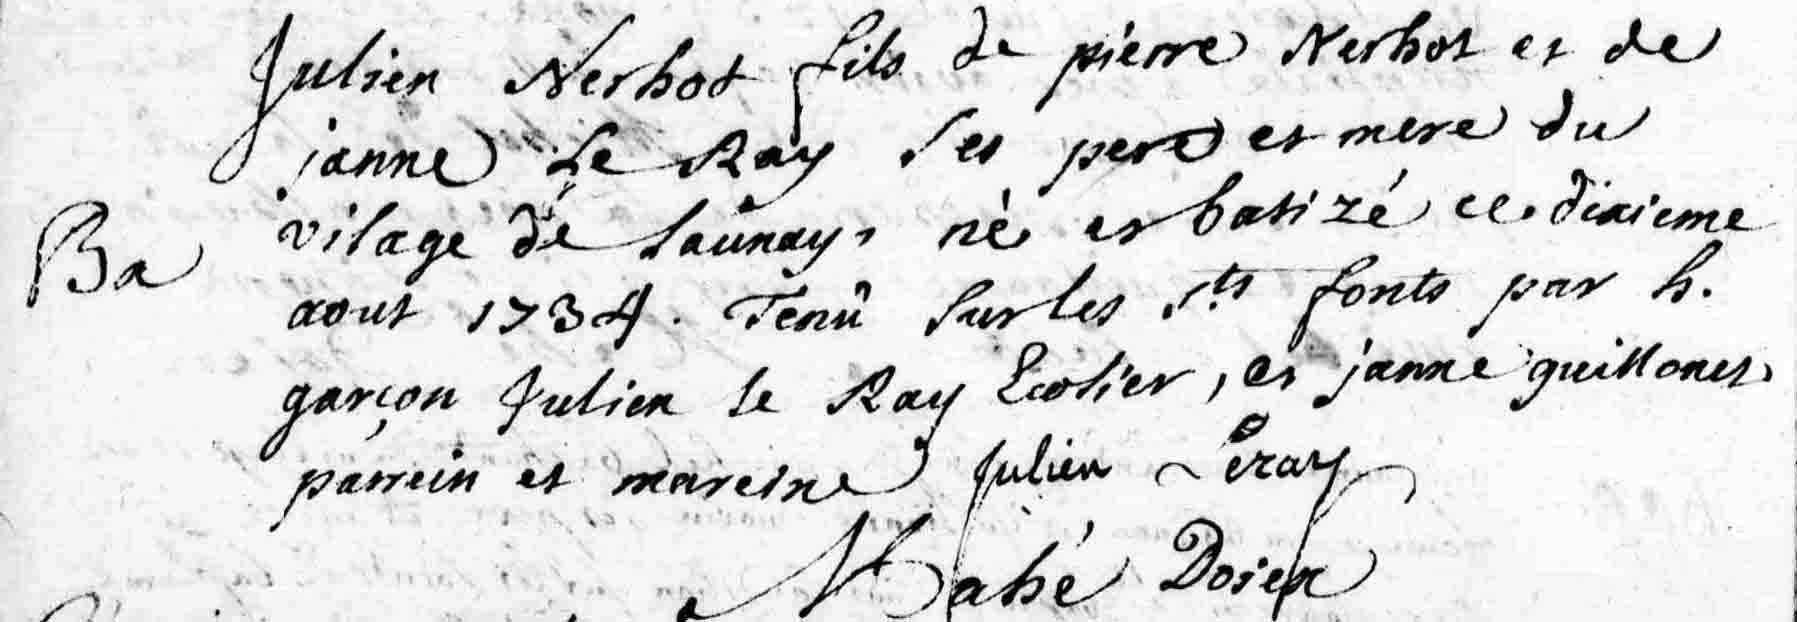 Julien Nerhot fils de pierre Nerhot et de
janne Le Ray ses pere et mere du
Ba vilage de Launay, né et batizé ce dixieme
aout 1734. Tenû sur les sts fonts par h.
garçon Julien le Ray Ecolier, et janne guillonet
parrein et mareine Julien Leray
Mahé Doien